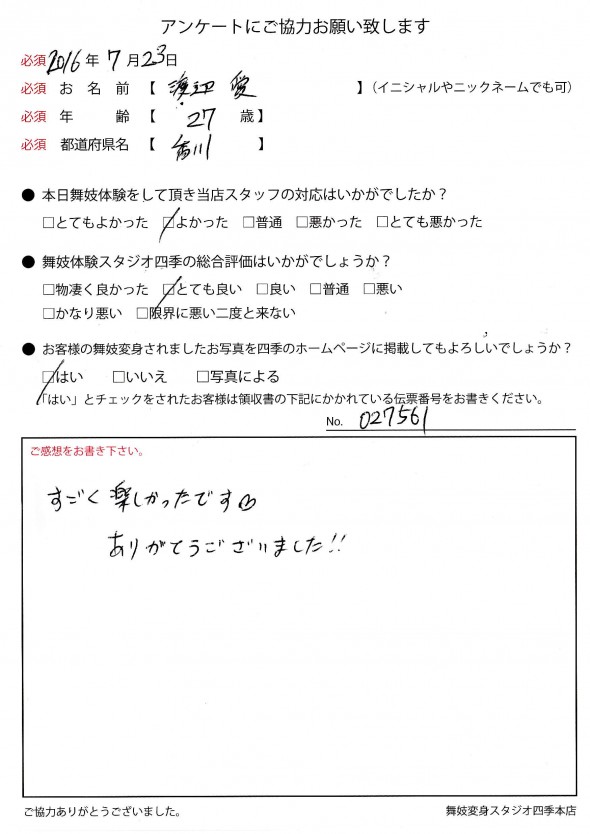 アンケートにご協力お願い致します
必須 2016年 7月23日
必須 お名前 【 渡辺 愛 】(イニシャルやニックネームでも可)
必須 年齢 【 27 歳】
必須 都道府県名 【 香川 】
● 本日舞妓体験をして頂き当店スタッフの対応はいかがでしたか?
□とてもよかった □よかった □普通 □悪かった □とても悪かった
● 舞妓体験スタジオ四季の総合評価はいかがでしょうか?
□物凄く良かった □とても良い □良い □普通 □悪い
□かなり悪い □限界に悪い二度と来ない
● お客様の舞妓変身されましたお写真を四季のホームページに掲載してもよろしいでしょうか?
□はい □いいえ □写真による
「はい」とチェックをされたお客様は領収書の下記にかかれている伝票番号をお書きください。
No. 027561
ご感想をお書き下さい。
すごく楽しかったです♡
ありがとうございました!!
ご協力ありがとうございました。 舞妓変身スタジオ四季本店